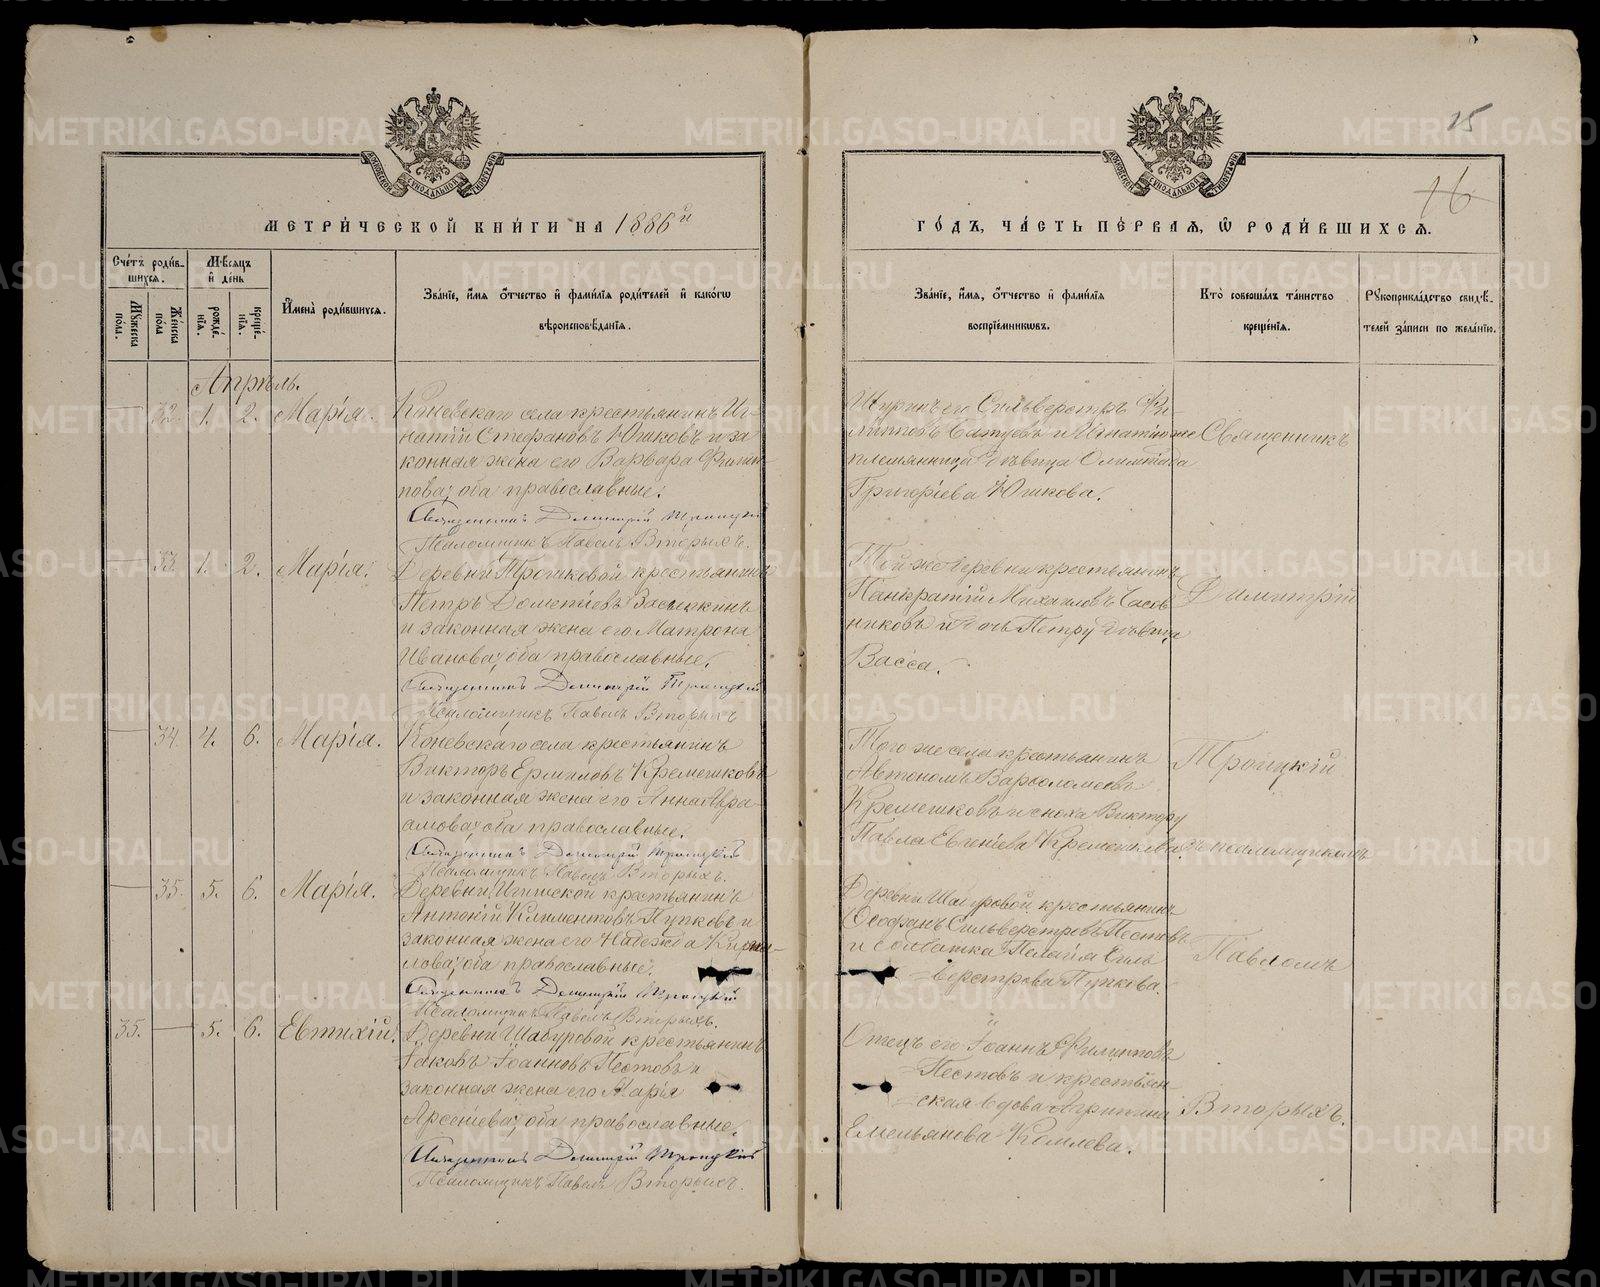 15
16
МЕТРИ́ЧЕСКОЙ КНИ́ГИ НА 1886й
ГО́ДЪ, ЧА́СТЬ ПЕ́РВАЯ, Ѡ РОДИ́ВШИХСЯ.
Сче́тъ роди́в-
шихся.
Мѣ́сяцъ
и҆ де́нь
Му́жеска
по́ла.
Же́нска
по́ла
рожде́-
нїя.
креще́-
нїя.
И҆мена̀ роди́вшихся.
Зва́нїе, и҆́мя ѻ҆́тчество и҆ фами́лїя роди́телей и҆ како́гѡ
вѣроисповѣ́данїя.
Зва́нїе, и҆́мя, ѻ҆́тчество и҆ фами́лїя
воспрїе́мникѡвъ.
Кто̀ соверша́лъ та́инство
креще́нїя.
Рꙋкоприкла́дство свидѣ́-
телей за́писи по жела́нїю.
Апрѣль.
32. 1. 2. Марія.
Коневскаго села крестьянинъ Иг-
натій Стефановъ Юшковъ и за
конная жена его Варвара Филип-
пова; оба православные.
Священникъ Димитрій Троицкій
Псаломщикъ Павелъ Вторыхъ.
Шуринъ его Сильверстръ Фи-
липповъ и Игнатію же
племянница дѣвица Олимпіада
Григоріева Юшкова.
Священникъ
33. 1. 2. Марія.
Деревни Трошковой крестьянинъ
Петръ Дометіевъ Засыпкинъ
и законная жена его Матрона
Иванова; оба православные.
Священникъ Димитрій Троицкій
Псаломщикъ Павелъ Вторыхъ
Той же деревни крестьянинъ
Панкратій Михаиловъ Часов
никовъ и дочь Петру дѣвица
Васса.
Димитрій
34. 4. 6. Марія.
Коневскаго села крестьянинъ
Викторъ Ермиловъ Кремешковъ
и законная жена его Анна Авра-
амова; оба православные.
Священникъ Димитрій Троицкій
Псаломщикъ Павелъ Вторыхъ.
Того же села крестьянинъ
Автономъ Варѳоломеевъ
Кремешковъ и сноха Виктору
Павла Евгеніева Кремешкова.
Троицкій
съ псаломщикомъ
35. 5. 6. Марія.
Деревни крестьянинъ
Антоній Климентовъ Пупковъ и
законная жена его Надежда Кирил-
лова; оба православные.
Священникъ Димитрій Троицкій
Псаломщикъ Павелъ Вторыхъ.
Деревни Шабуровой крестьянинъ
Ѳеофанъ Сильверстровъ Пестовъ
и солдатка Пелагія Силь
=верстрова Пупкова.
Павломъ
35. 5. 6. Евтихій.
Деревни Шабуровой крестьянинъ
Іаковъ Іоанновъ Пестовъ и
законная жена его Марія
Арсеніева; оба православные.
Священникъ Димитрій Троицкій
Псаломщикъ Павелъ Вторыхъ.
Отецъ его Іоаннъ Филипповъ
=Пестовъ и крестьян-
=ская вдова Агрипина
Емельянова Комлева.
Вторыхъ.
METRIKI.GASO-URAL.RU